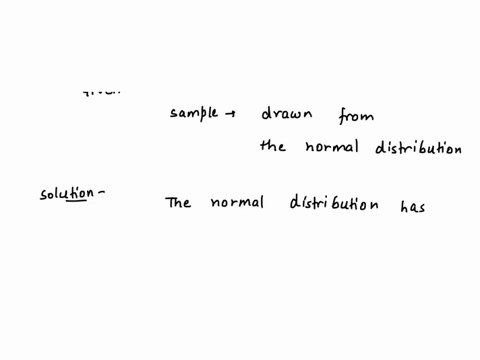 sample → drawn from
the normal distribution
solution - The normal distribution has